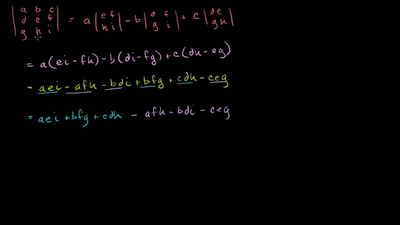 | a b c | = a | e f | - b | d f | + c | d e |
| d e f | | h i | | g i | | g h |
| g h i |
= a(ei - fh) - b(di - fg) + c(dh - eg)
= aei - afh - bdi + bfg + cdh - ceg
= aei + bfg + cdh - afh - bdi - ceg